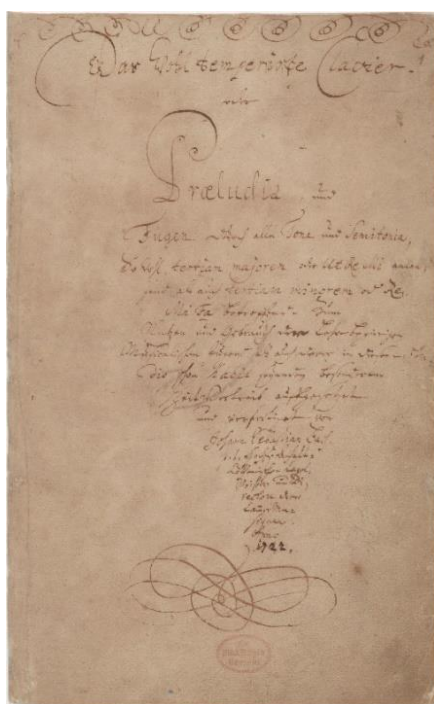 Das Wohl temperirte Clavier.
oder
Præludia und
Fugen durch alle Tone und Semitonia,
So wohl tertiam majorem oder Ut Re Mi anlan-
gend, als auch tertiam minorem oder Re
Mi Fa betreffend. Zum
Nutzen und Gebrauch der Lehrbegierigen
Musicalischen Jugend als auch derer in diesem stu-
dio schon habil seyenden besondern
Zeit Vertreib aufgesetzet
und verfertiget von
Johann Sebastian Bach
p. t. Hochfürstl.
Anhalt. Capel-
Meistern und Di-
rectore derer
Cammer
Musiquen.
Anno
1722.